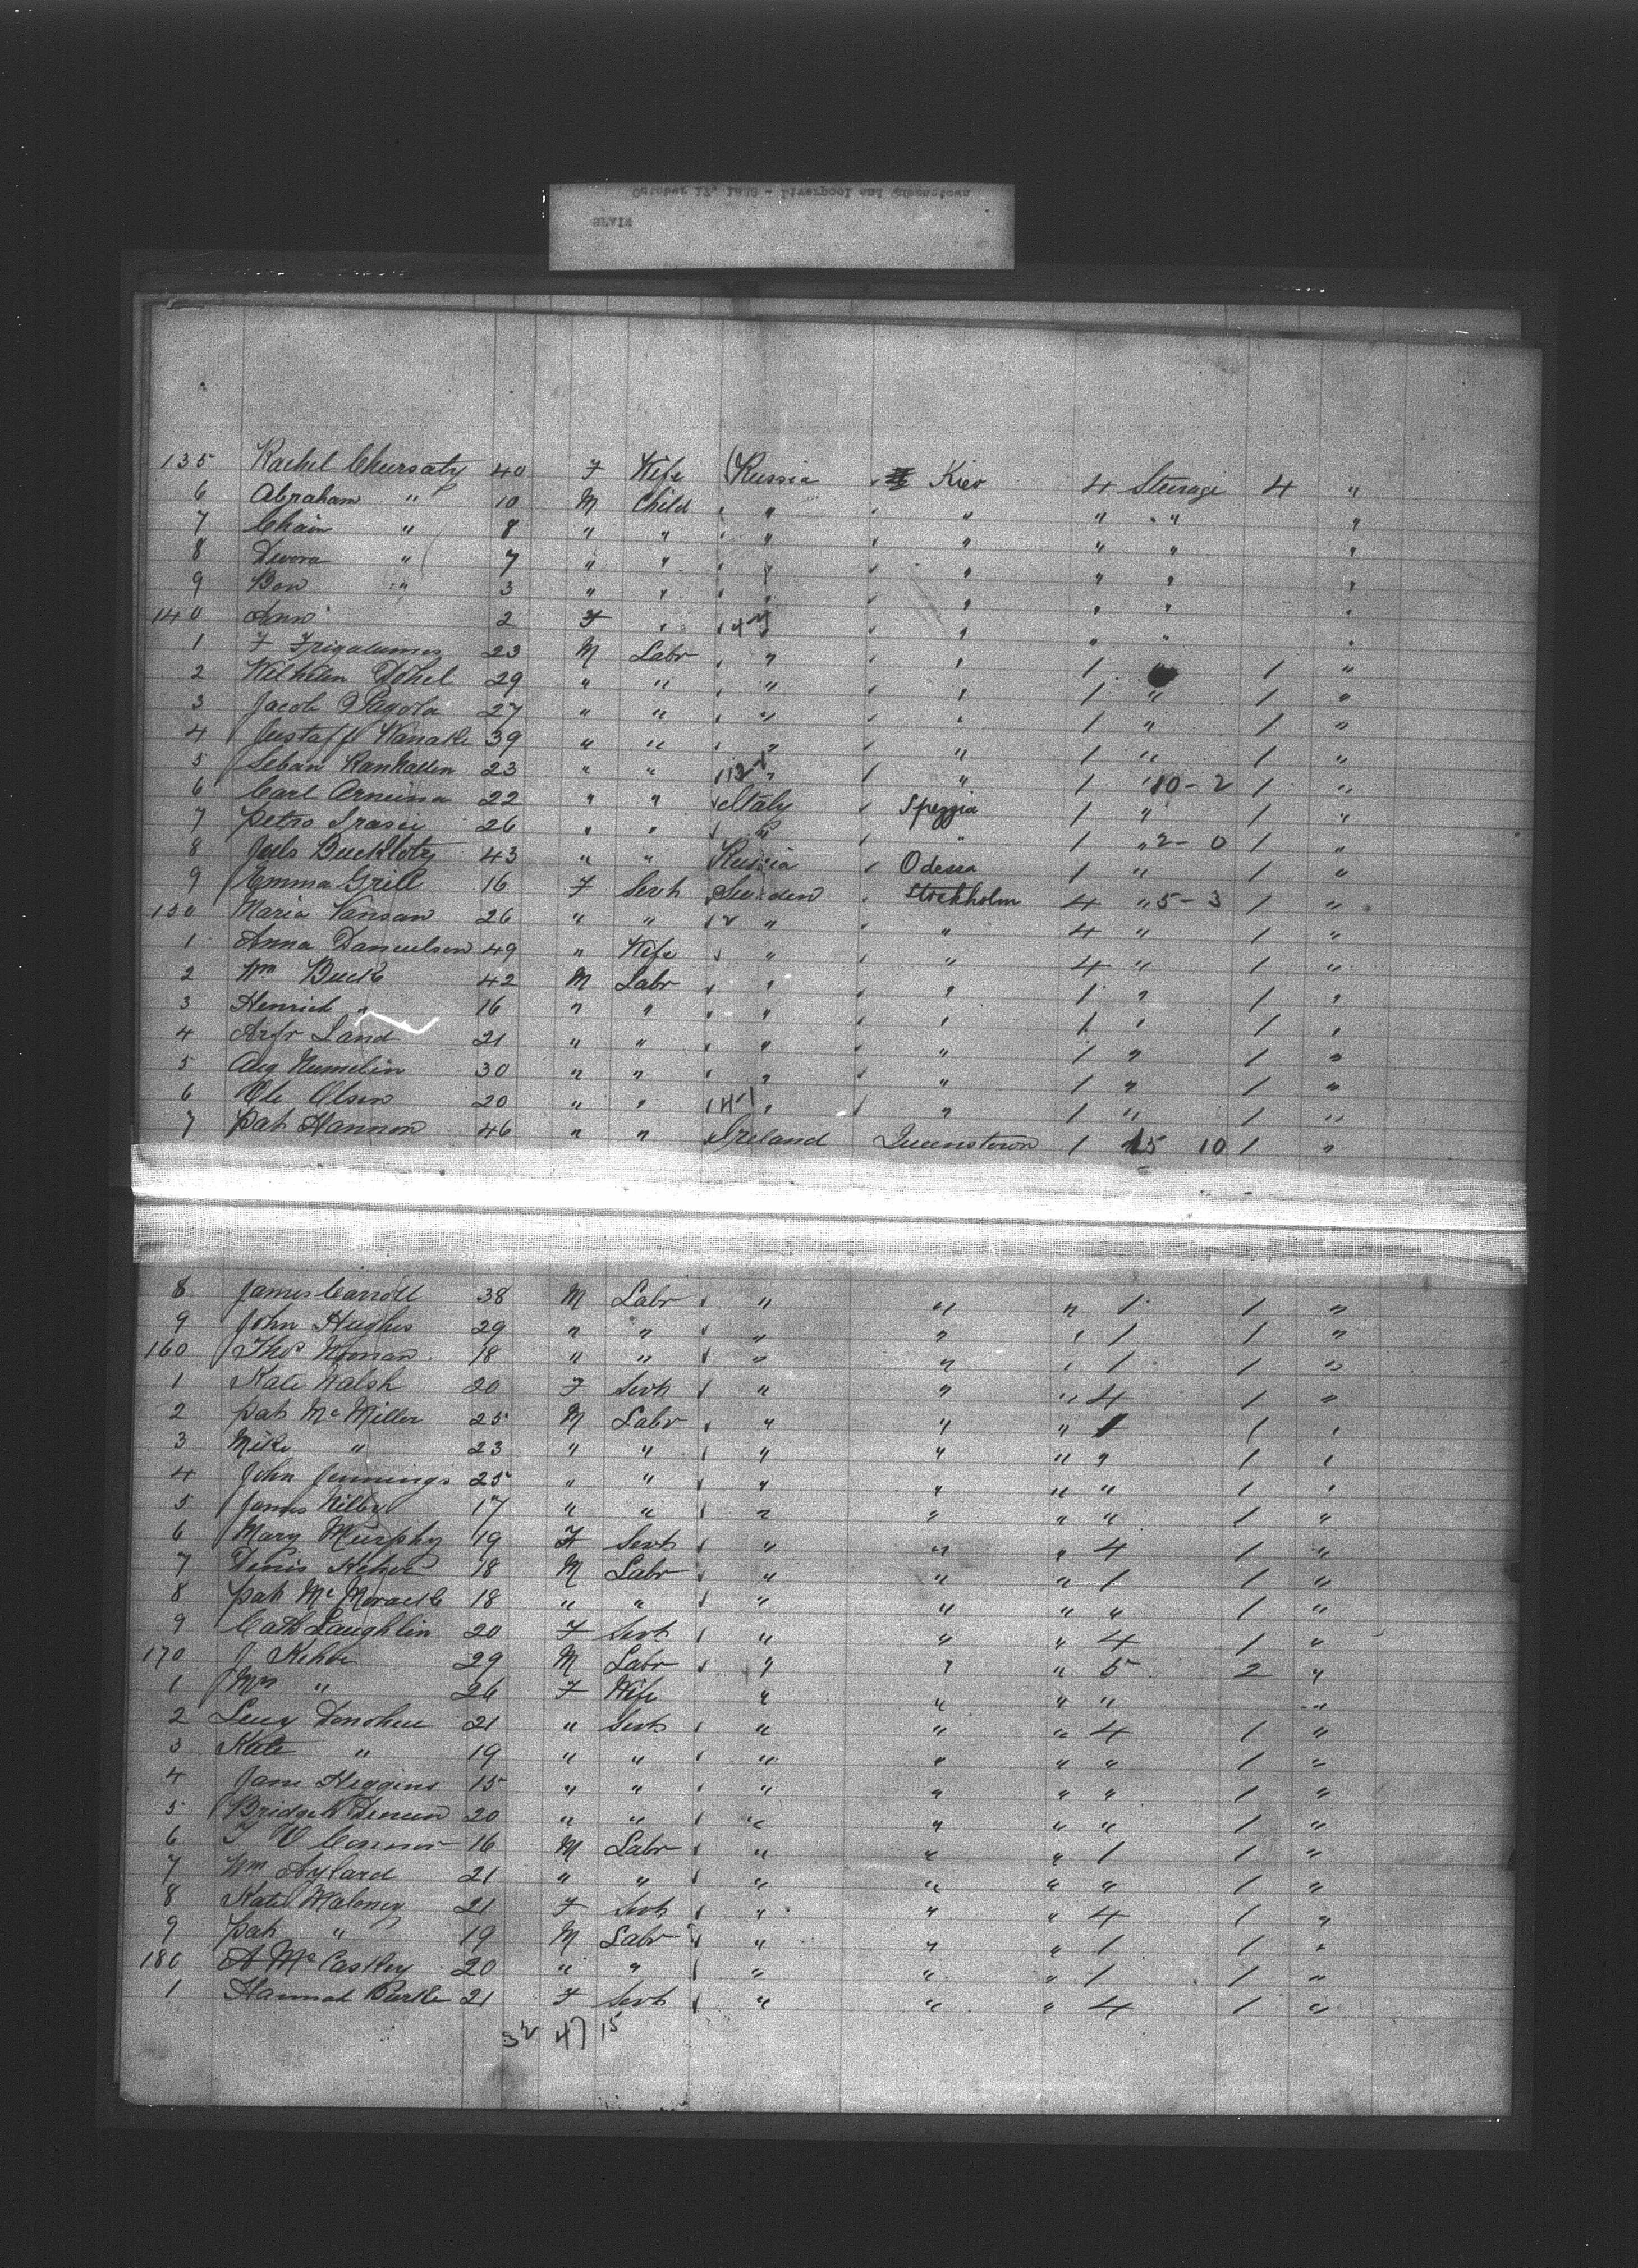 135 Rachel Chursaty 40 F Wife Russia Kiev 4 Steerage 4 "
6 Abraham " 10 M Child " " " " "
7 Chaim " 8 " " " " " " "
8 Devora " 7 " " " " " " "
9 Bon " 3 " " " " " " "
140 Ann 2 F " " " " "
1 F 23 M Labr " " 1 1 "
2 Wilhelm Dohel 29 " " " " 1 " 1 "
3 Jacob 27 " " " " 1 " 1 "
4 Gustaff Wanake 39 " " " " 1 " 1 "
5 Seban Rankallen 23 " " " " 1 " 10-2 1 "
6 Carl 22 " " Italy Spezzia 1 " 1 "
7 Petro 26 " " " " 1 " 2-0 1 "
8 Buckloty 43 " " Russia Odessa 1 " 1 "
9 Emma Grill 16 F Servt Sweden Stockholm 4 " 5-3 1 "
150 Maria Vansan 26 " " " " 4 " 1 "
1 Anna Danielson 49 " Wife " " 4 " 1 "
2 Wm Buck 42 M Labr " " 1 " 1 "
3 Henrich " 16 " " " " 1 " 1 "
4 Land 21 " " " " 1 " 1 "
5 Aug Numelin 30 " " " " 1 " 1 "
6 Ole Olsen 20 " " " " 1 " 1 "
7 Pat Hannon 46 " " Ireland Queenstown 1 15 10 1 "
8 James Carroll 38 M Labr " " " 1 1 "
9 John Hughes 29 " " " " " 1 1 "
160 Thos Noonan 18 " " " " " 1 1 "
1 Kate Walsh 20 F Servt " " " 4 1 "
2 Pat McMiller 25 M Labr " " " 1 1 "
3 Mike " 23 " " " " " " 1 "
4 John Jennings 25 " " " " " " 1 "
5 James Kilby 17 " " " " " " 1 "
6 Mary Murphy 19 F Servt " " " 4 1 "
7 Denis Kehoe 18 M Labr " " " 1 1 "
8 Pat 18 " " " " " " 1 "
9 Cath Laughlin 20 F Servt " " " 4 1 "
170 J Kehoe 29 M Labr " " " 5 2 "
1 Mrs " 26 F Wife " " " " "
2 Lucy Donohue 21 " Servt " " " 4 1 "
3 Kate " 19 " " " " " " 1 "
4 Jane Higgins 15 " " " " " " 1 "
5 Bridget 20 " " " " " " 1 "
6 T O'Connor 16 M Labr " " " 1 1 "
7 Wm Aylard 21 " " " " " " 1 "
8 Kate Maloney 21 F Servt " " " 4 1 "
9 Pat " 19 M Labr " " " 1 1 "
180 A McCaskey 20 " " " " " 1 1 "
1 Hannah Burke 21 F Servt " " " 4 1 "
32 47 15